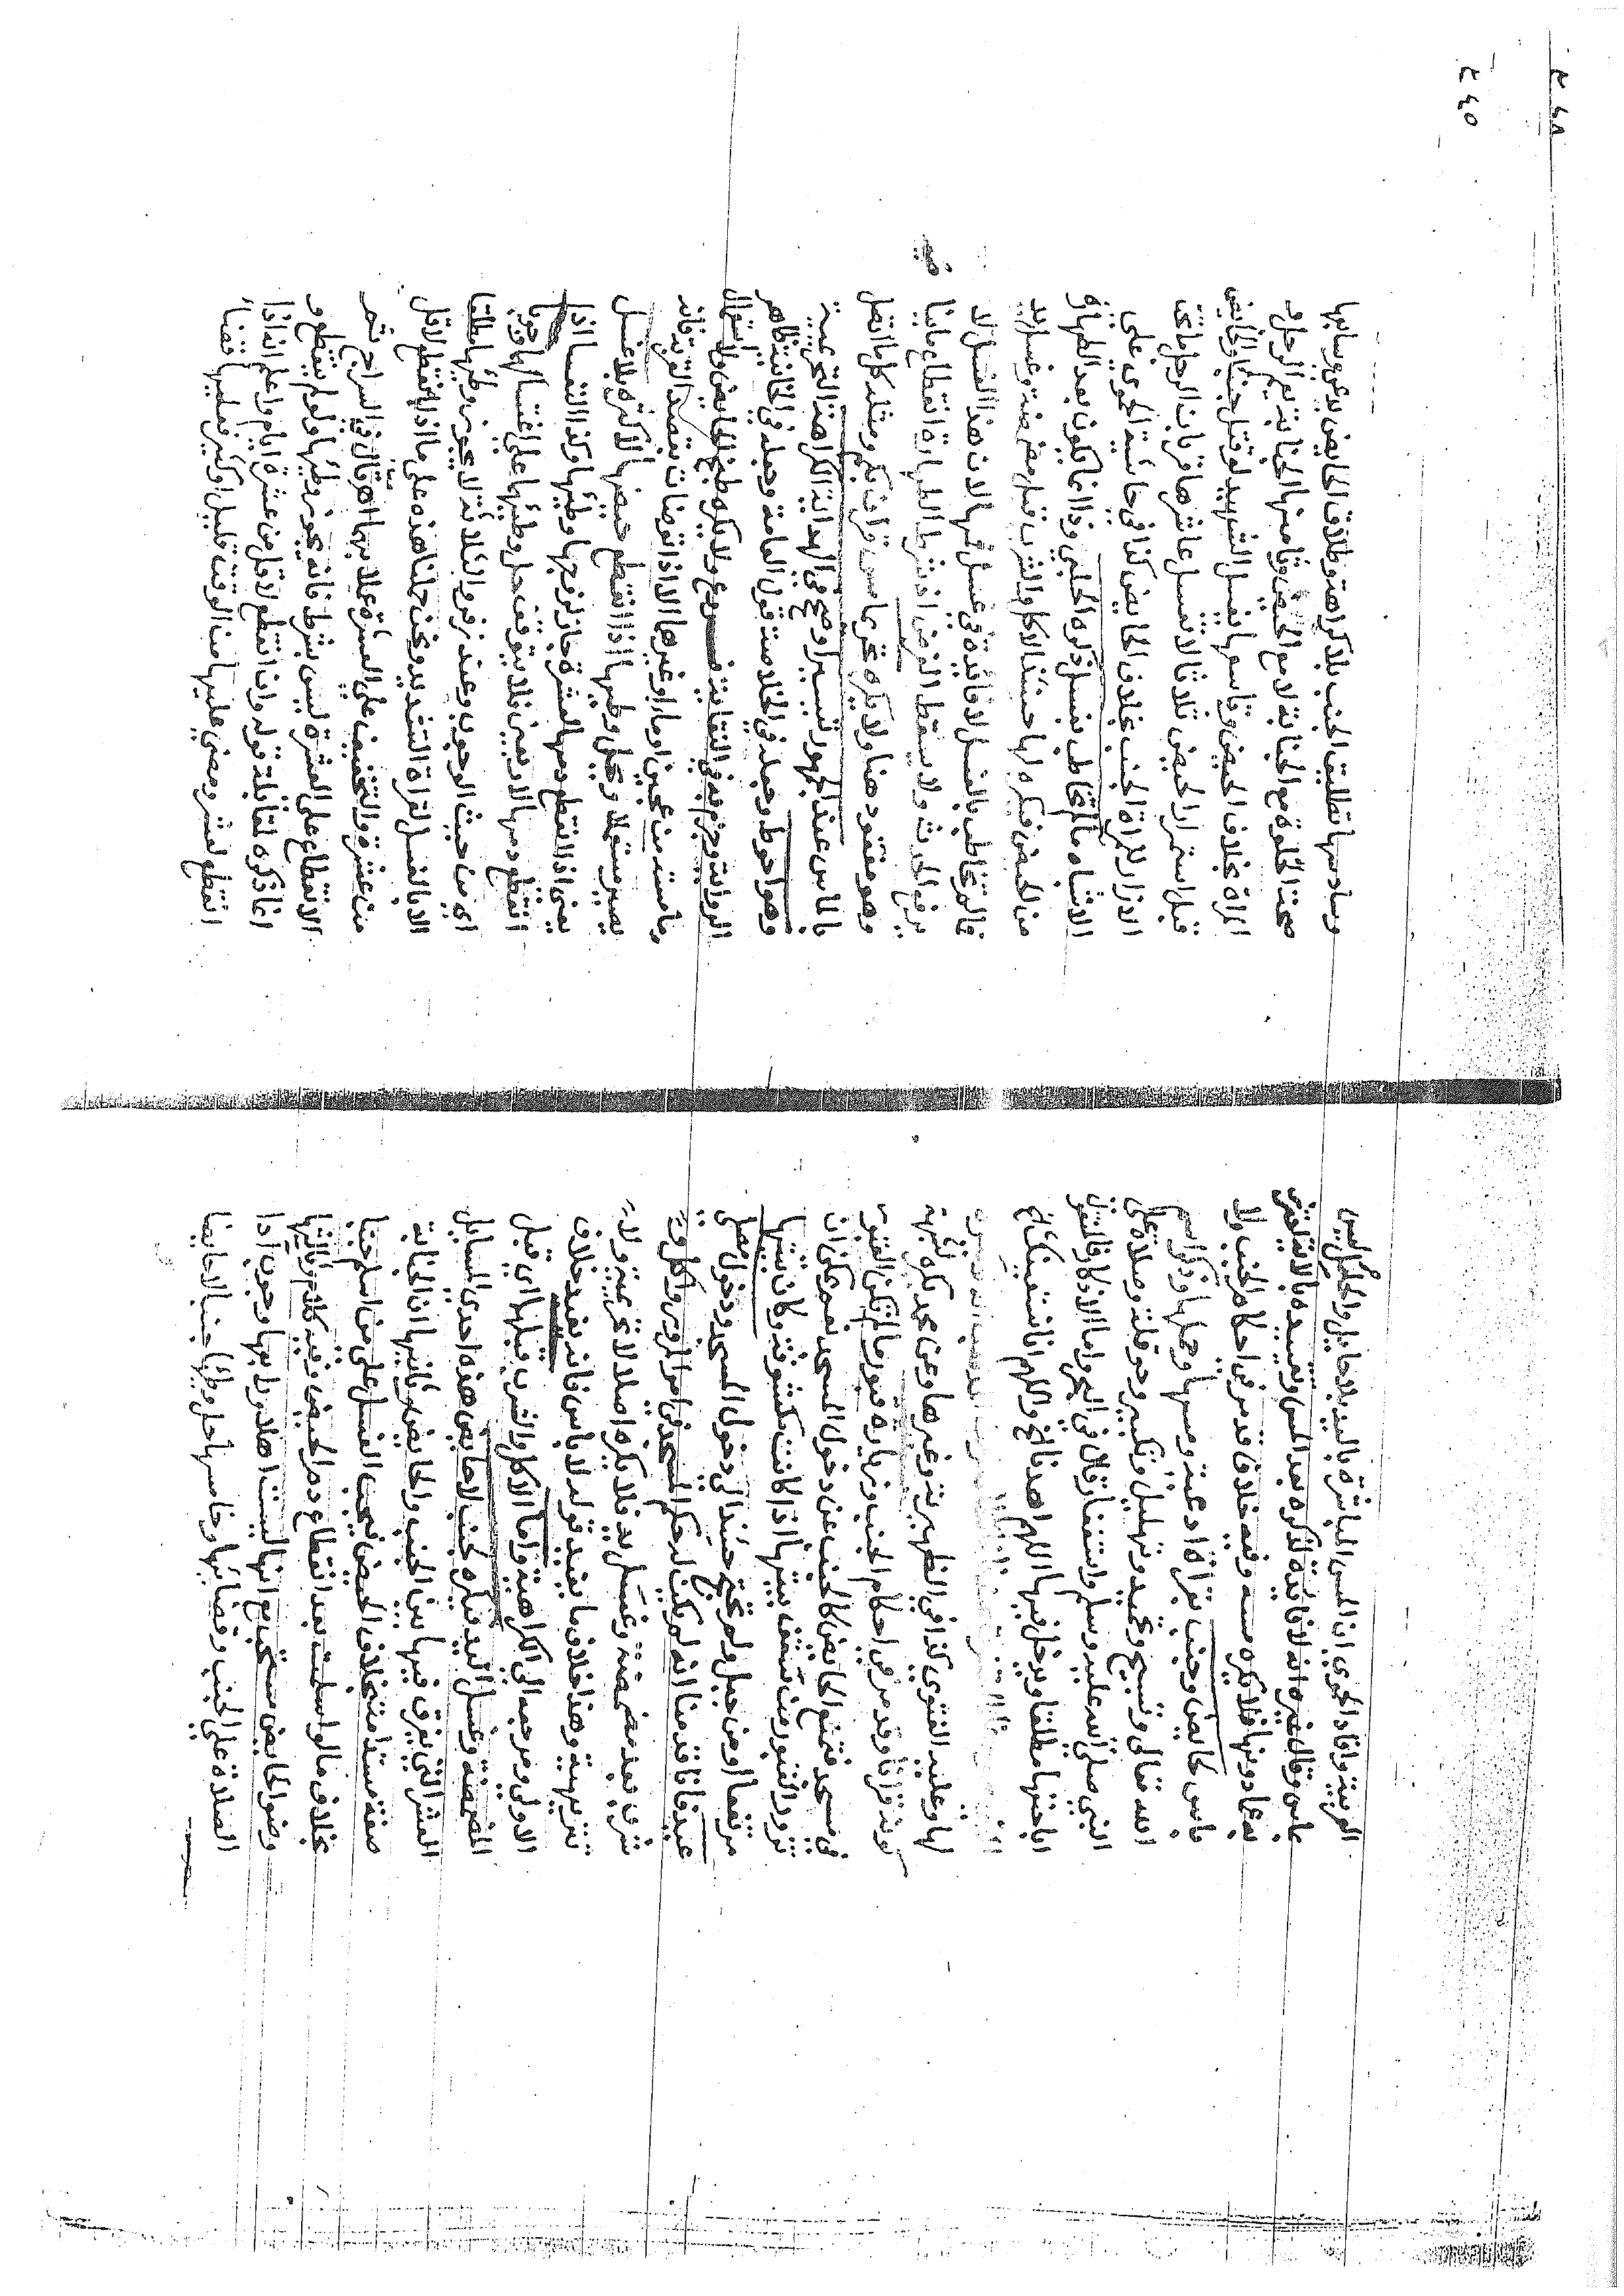 العربية وافاد الحموي ان المس المباشرة باليد بلا حائل والحكم ليس
خاص وقال غيره انه لا فائدة لذكره بعد المس
بما دونها فلا يكره مسه وفيه خلاف قد مر في احكام الجنب ولا
باس لحايض وجنب بقراءة ادعية ومسها وحملها وذكر اسم
الله تعالى وتسبيح وتحميد وتهليل وتكبير وحوقلة وصلاة على
النبي صلى الله عليه وسلم واستغفار قال في البحر واما الاذكار فالمنقول
اباحتها مطلقا ويدخل فيها اللهم اهدنا الخ واللهم انا نستعينك الخ
لها وعليه الفتوى كذا في الظهيرية وغيرها وعن محمد يكره لشبهة
كونه قرانا وقد مر في احكام الجنب وزيارة قبور ما لم تكن القبور
في مسجد فتمنع الحايض كالجنب عن دخول المسجد نعم ان
تزور القبور من سقف بيتها اذا كانت مكشوفة وكان بيتها
مرتفعا او من جبل ولم تحتج حينئذ الى دخول المسجد ودخول مصلى
عيد فانا قدمنا انه لم يكن له حكم المسجد في امور اخرى واكل و
شرب بعد مضمضة وغسل يد فلا يكره اصلا لا تحريمية ولا
تنزيهية وهذا خلاف ما يفيده قوله لا باس فانه يفيد خلاف
الاولى ومرجعه الى الكراهية واما الاكل والشرب قبلها اي قبل
المضمضة وغسل اليد فيكره لجنب لا حايض هذه احدى المسايل
العشر التي يفرق فيها بين الجنب والحايض وثانيها ان الجنابة
صفة مستدامة بخلاف الحيض فيجب الغسل على من اسلم جنبا
بخلاف ما لو اسلمت بعد انقطاع دم الحيض وفيه كلام وثالثها
وضوء الحايض مستحب مع انها ليست اهلا ورابعها وجوب اداء
الصلاة على الجنب وقضائها وخامسها حل وطئ جنب لا حايضا
٤٩٥
وسادسها تطليق الجنب بلا كراهة وطلاق الحايض بدعي وسابعها
صحة الخلوة مع الجنابة لا مع الحيض وثامنها الجنابة تعم الرجل و
المراة بخلاف الحيض وتاسعها يغسل الشهيد لو قتل جنبا والحايض
قبل استمرار الحيض ثلاثا لا تغسل عاشرها قربان الرجل ما تحت
الازار للمراة الجنب بخلاف الحايض كذا في حاشية الحموي على
الاشباه ما لم تخاطب بغسل ذكره الحلبي وذا انما يكون بعد الطهارة
من الحيض فيكره لها حينئذ الاكل والشرب قبل مضمضة وغسل يد
فالم تخاطب بالغسل لا فائدة في غسل فمها لان هذا الغسل لا
يرفع الحدث ولا يسقط الفرض اذ شرط الطهارة انقطاع ما ينا
وهو مفقود هنا ولا يكره تحريما مس قران بكم ومثله كل ما اتصل
باللابس عند الجمهور تيسيرا وصحح في الهداية الكراهة التحريمية
وهو احوط وجعله في الخلاصة قول العامة وجعله في الخانية ظاهر
الرواية ولا يكره طبخ الحايض ولا استعمال
ما مسته من عجين او ماء او غيرها الا اذا توضات بقصد القربة فانه
يصير مستعملا ويحل وطيها اذا انقطع حيضها لاكثره بلا غسل
يعني اذا انقطع دمها لعشرة جاز لزوجها وطيها وكذا النفساء اذا
انقطع دمها لاربعين فلا يتوقف حل وطيها على اغتسالها وجوبا
اي من حيث الوجوب وعند زفر والثلاثة لا يجوز وطئها مطلقا
الا بالغسل لقراءة التشديد ونحن حملنا هذه على ما اذا انقطع لاقل
من عشرة والتخفيف على العشرة عملا بهما قال في السراج ثم
الانقطاع على العشرة ليس بشرط فانه يجوز وطئها ولو لم ينقطع و
انما ذكره لمقابلة قوله وان انقطع لاقل من عشرة ايام واعلم انه اذا
انقطع لعشر ومضى عليها من الوقت قليل او كثير فعليها قضاء